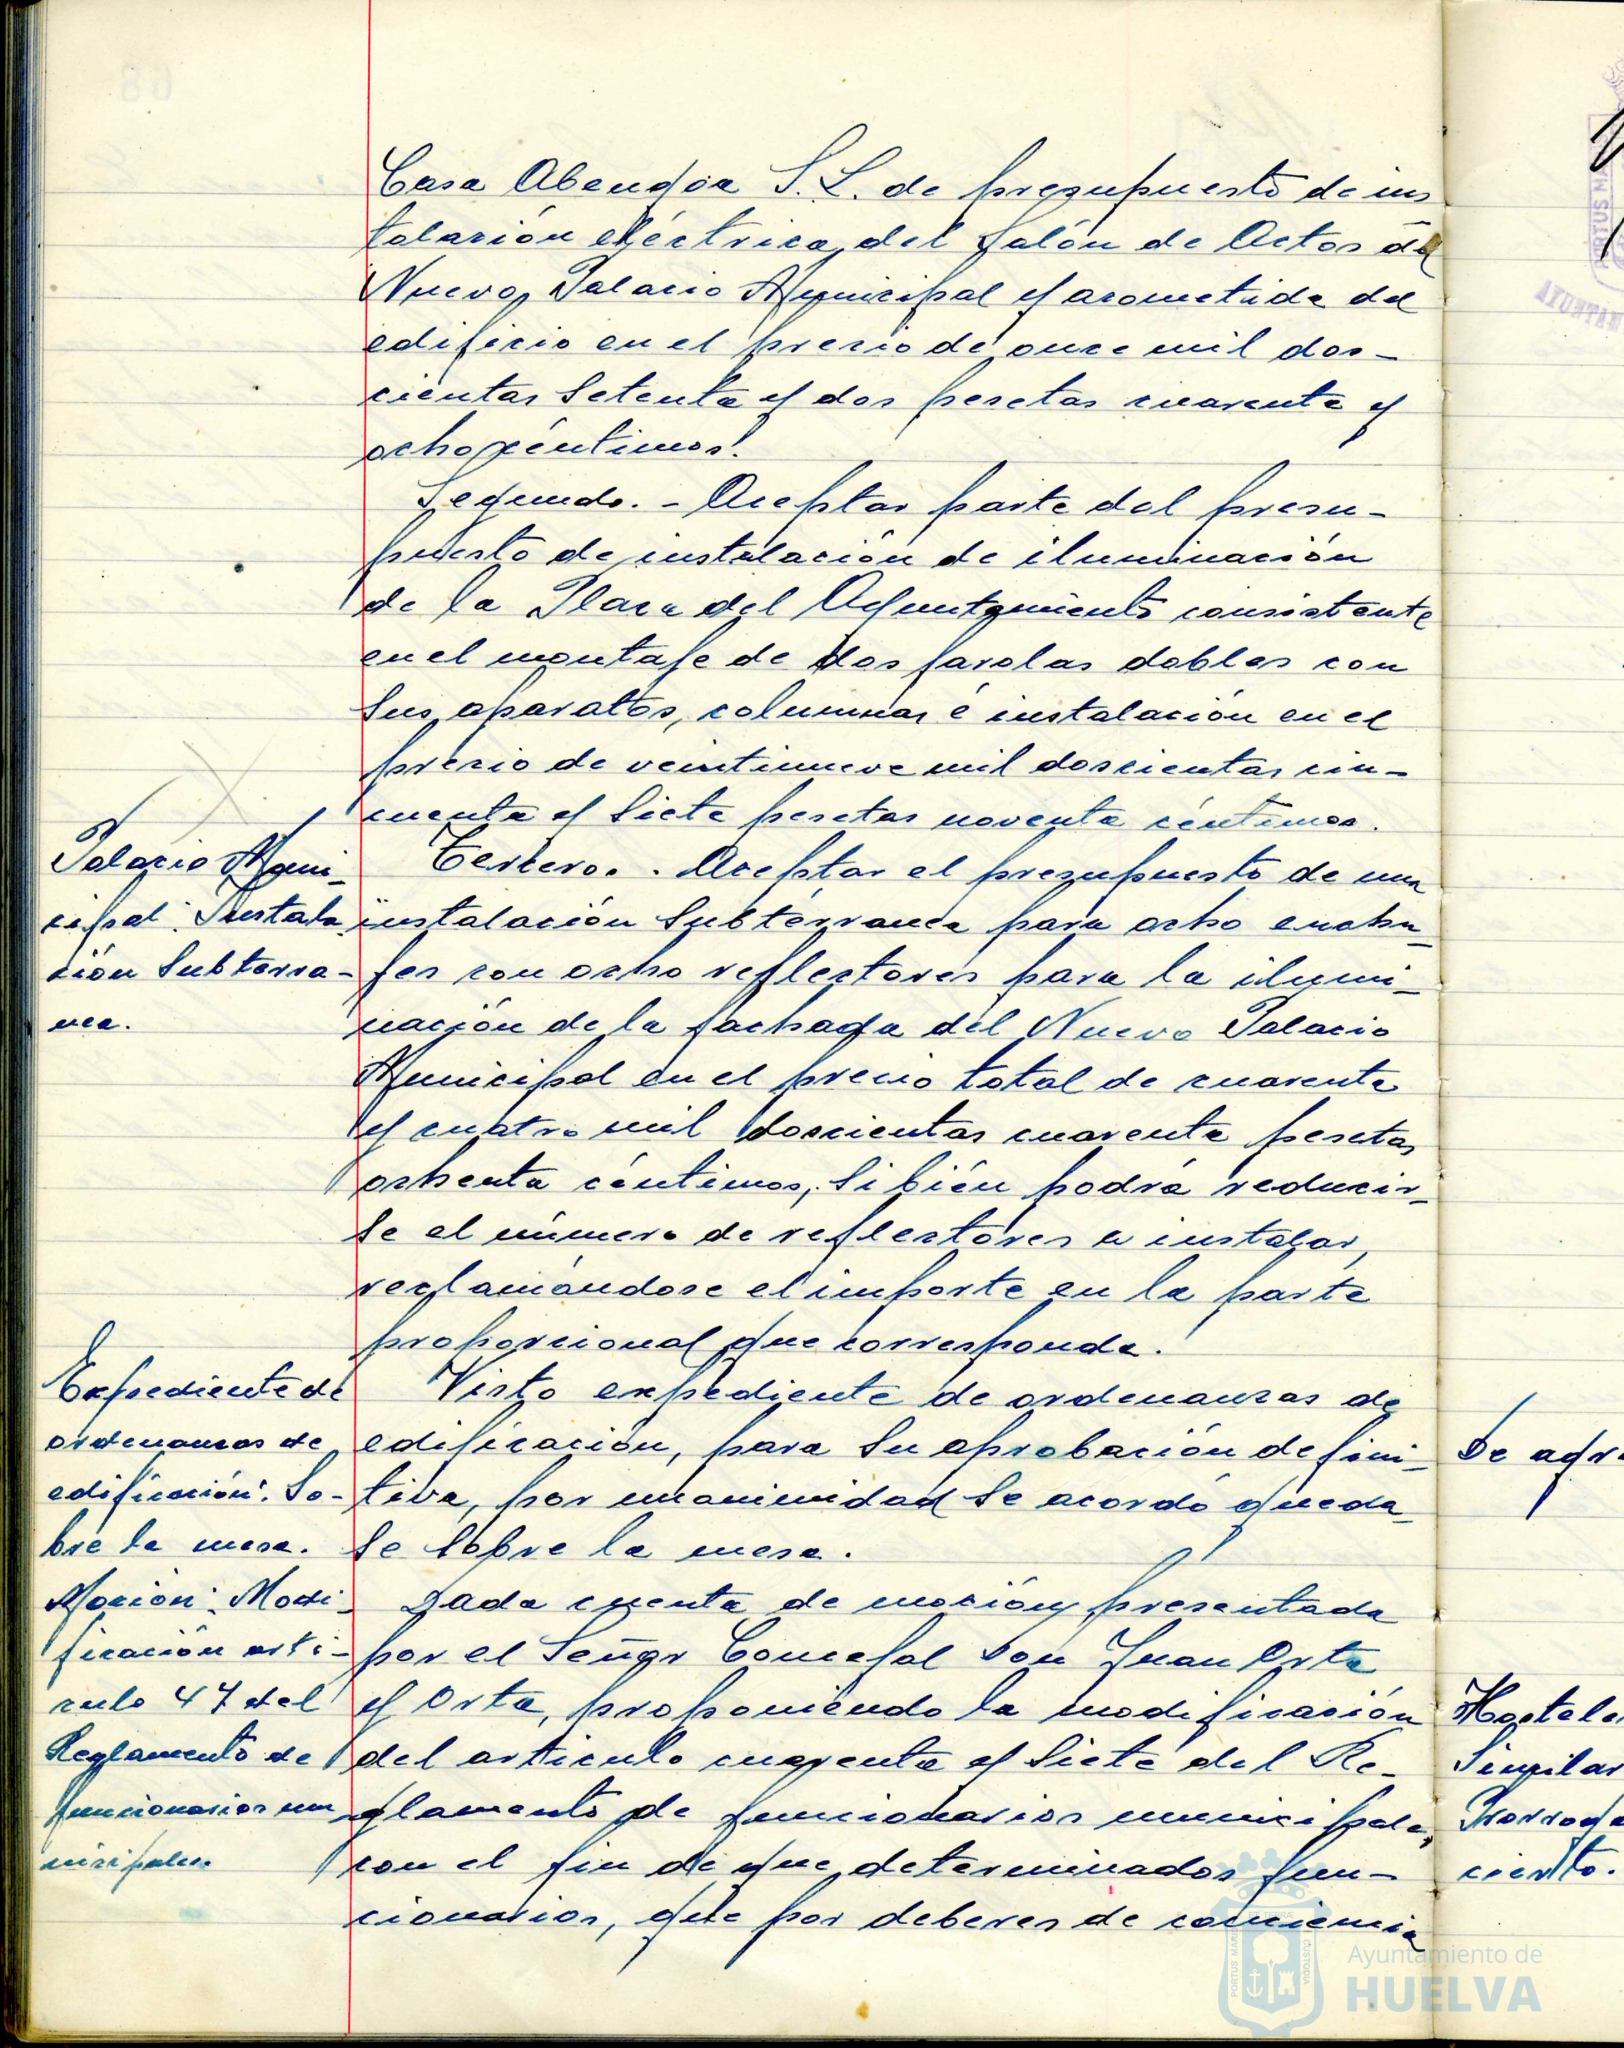 Casa Abengoa S. L. de presupuesto de ins
talación eléctrica del Salón de Actos del
Nuevo Palacio Municipal y acometida del
edificio en el precio de once mil dos-
cientas setenta y dos pesetas cuarenta y
ocho céntimos.
Segundo. - Aceptar parte del presu-
puesto de instalación de iluminación
de la Plaza del Ayuntamiento consistente
en el montaje de dos farolas dobles con
sus aparatos, columnas é instalación en el
precio de veintinueve mil doscientas cin-
cuenta y siete pesetas noventa céntimos.
Palacio Muni-
cipal. Instala
ción Subterra-
nea.
Tercero. - Aceptar el presupuesto de una
instalación Subterranea para ocho enchu-
fes con ocho reflectores para la ilumi-
nación de la fachada del Nuevo Palacio
Municipal en el precio total de cuarenta
y cuatro mil doscientas cuarenta pesetas
ochenta céntimos, si bién podrá reducir-
se el número de reflectores a instalar,
reglamándose el importe en la parte
proporcional que corresponda.
Expediente de
ordenanzas de
edificación. So-
bre la mesa.
Visto expediente de ordenanzas de
edificación, para su aprobación defini-
tiva, por unanimidad se acordó queda-
se sobre la mesa.
Moción. Modi-
ficación artí-
culo 47 del
Reglamento de
funcionarios mu
nicipales.
Dada cuenta de moción presentada
por el Señor Concejal Don Juan Orta
y Orta, proponiendo la modificación
del artículo cuarenta y siete del Re-
glamento de funcionarios municipales,
con el fin de que determinados fun-
cionarios, que por deberes de conciencia
De
cierto.
Ayuntamiento de
HUELVA